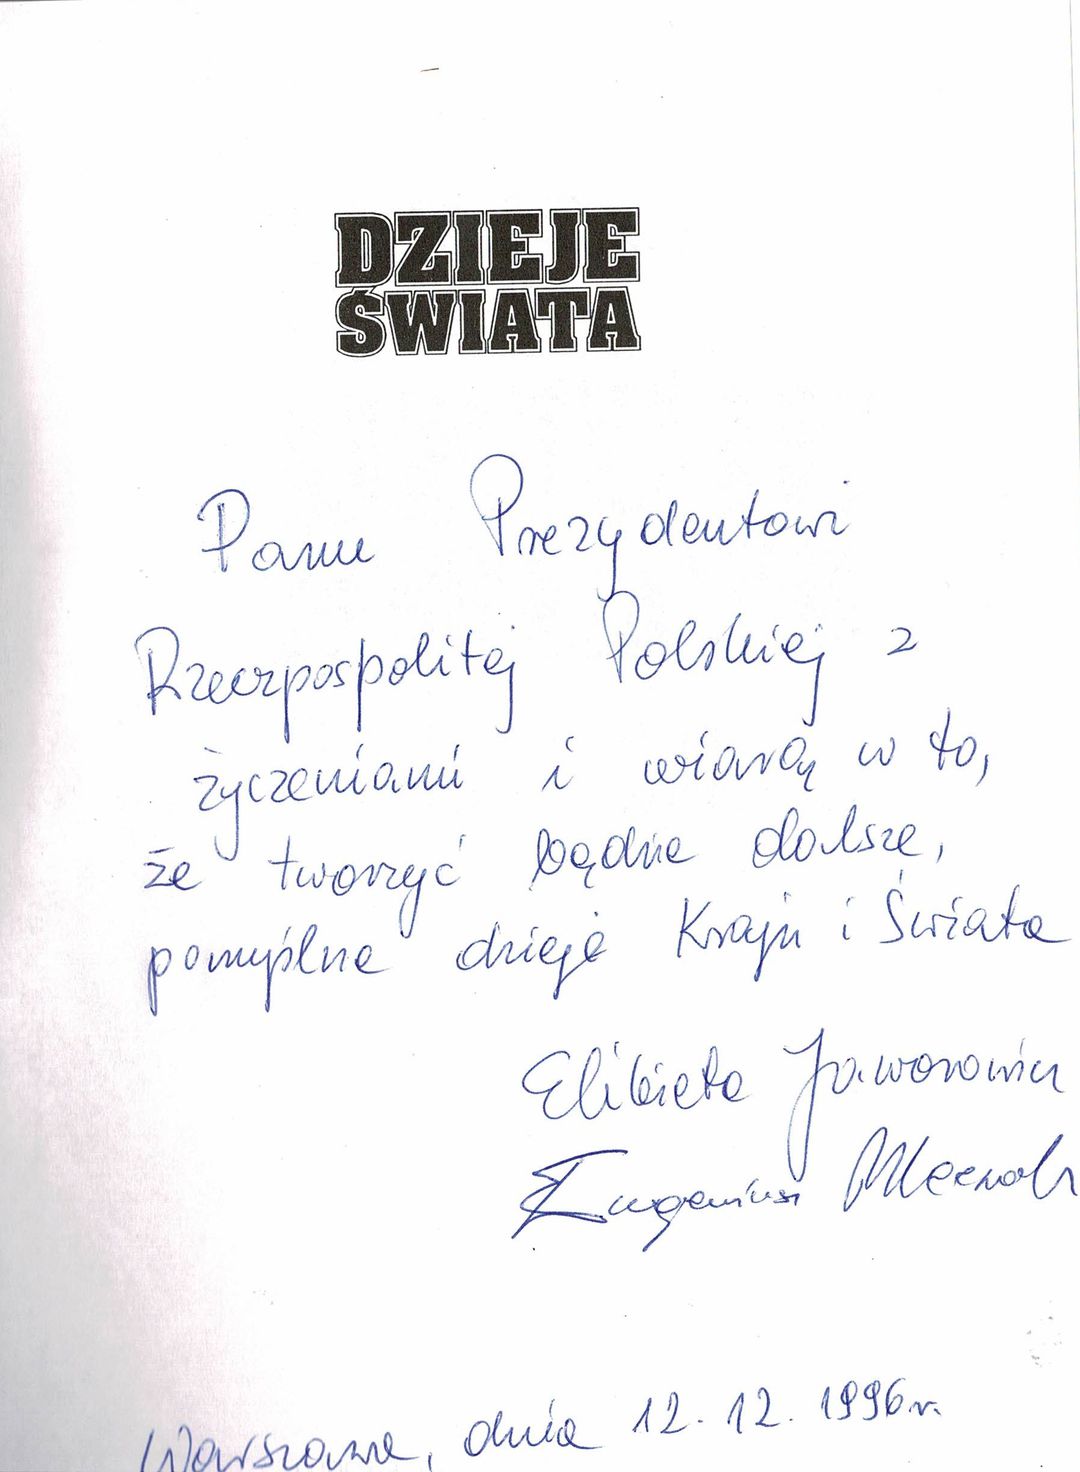 DZIEJE
ŚWIATA
Panu Prezydentowi
Rzeczpospolitej Polskiej z
życzeniami i wiarą w to,
że tworzyć będzie dalsze,
pomyślne dzieje Kraju i Świata
Elżbieta Jaworowicz
Eugeniusz Mleczak
Warszawa, dnia 12.12.1996r.